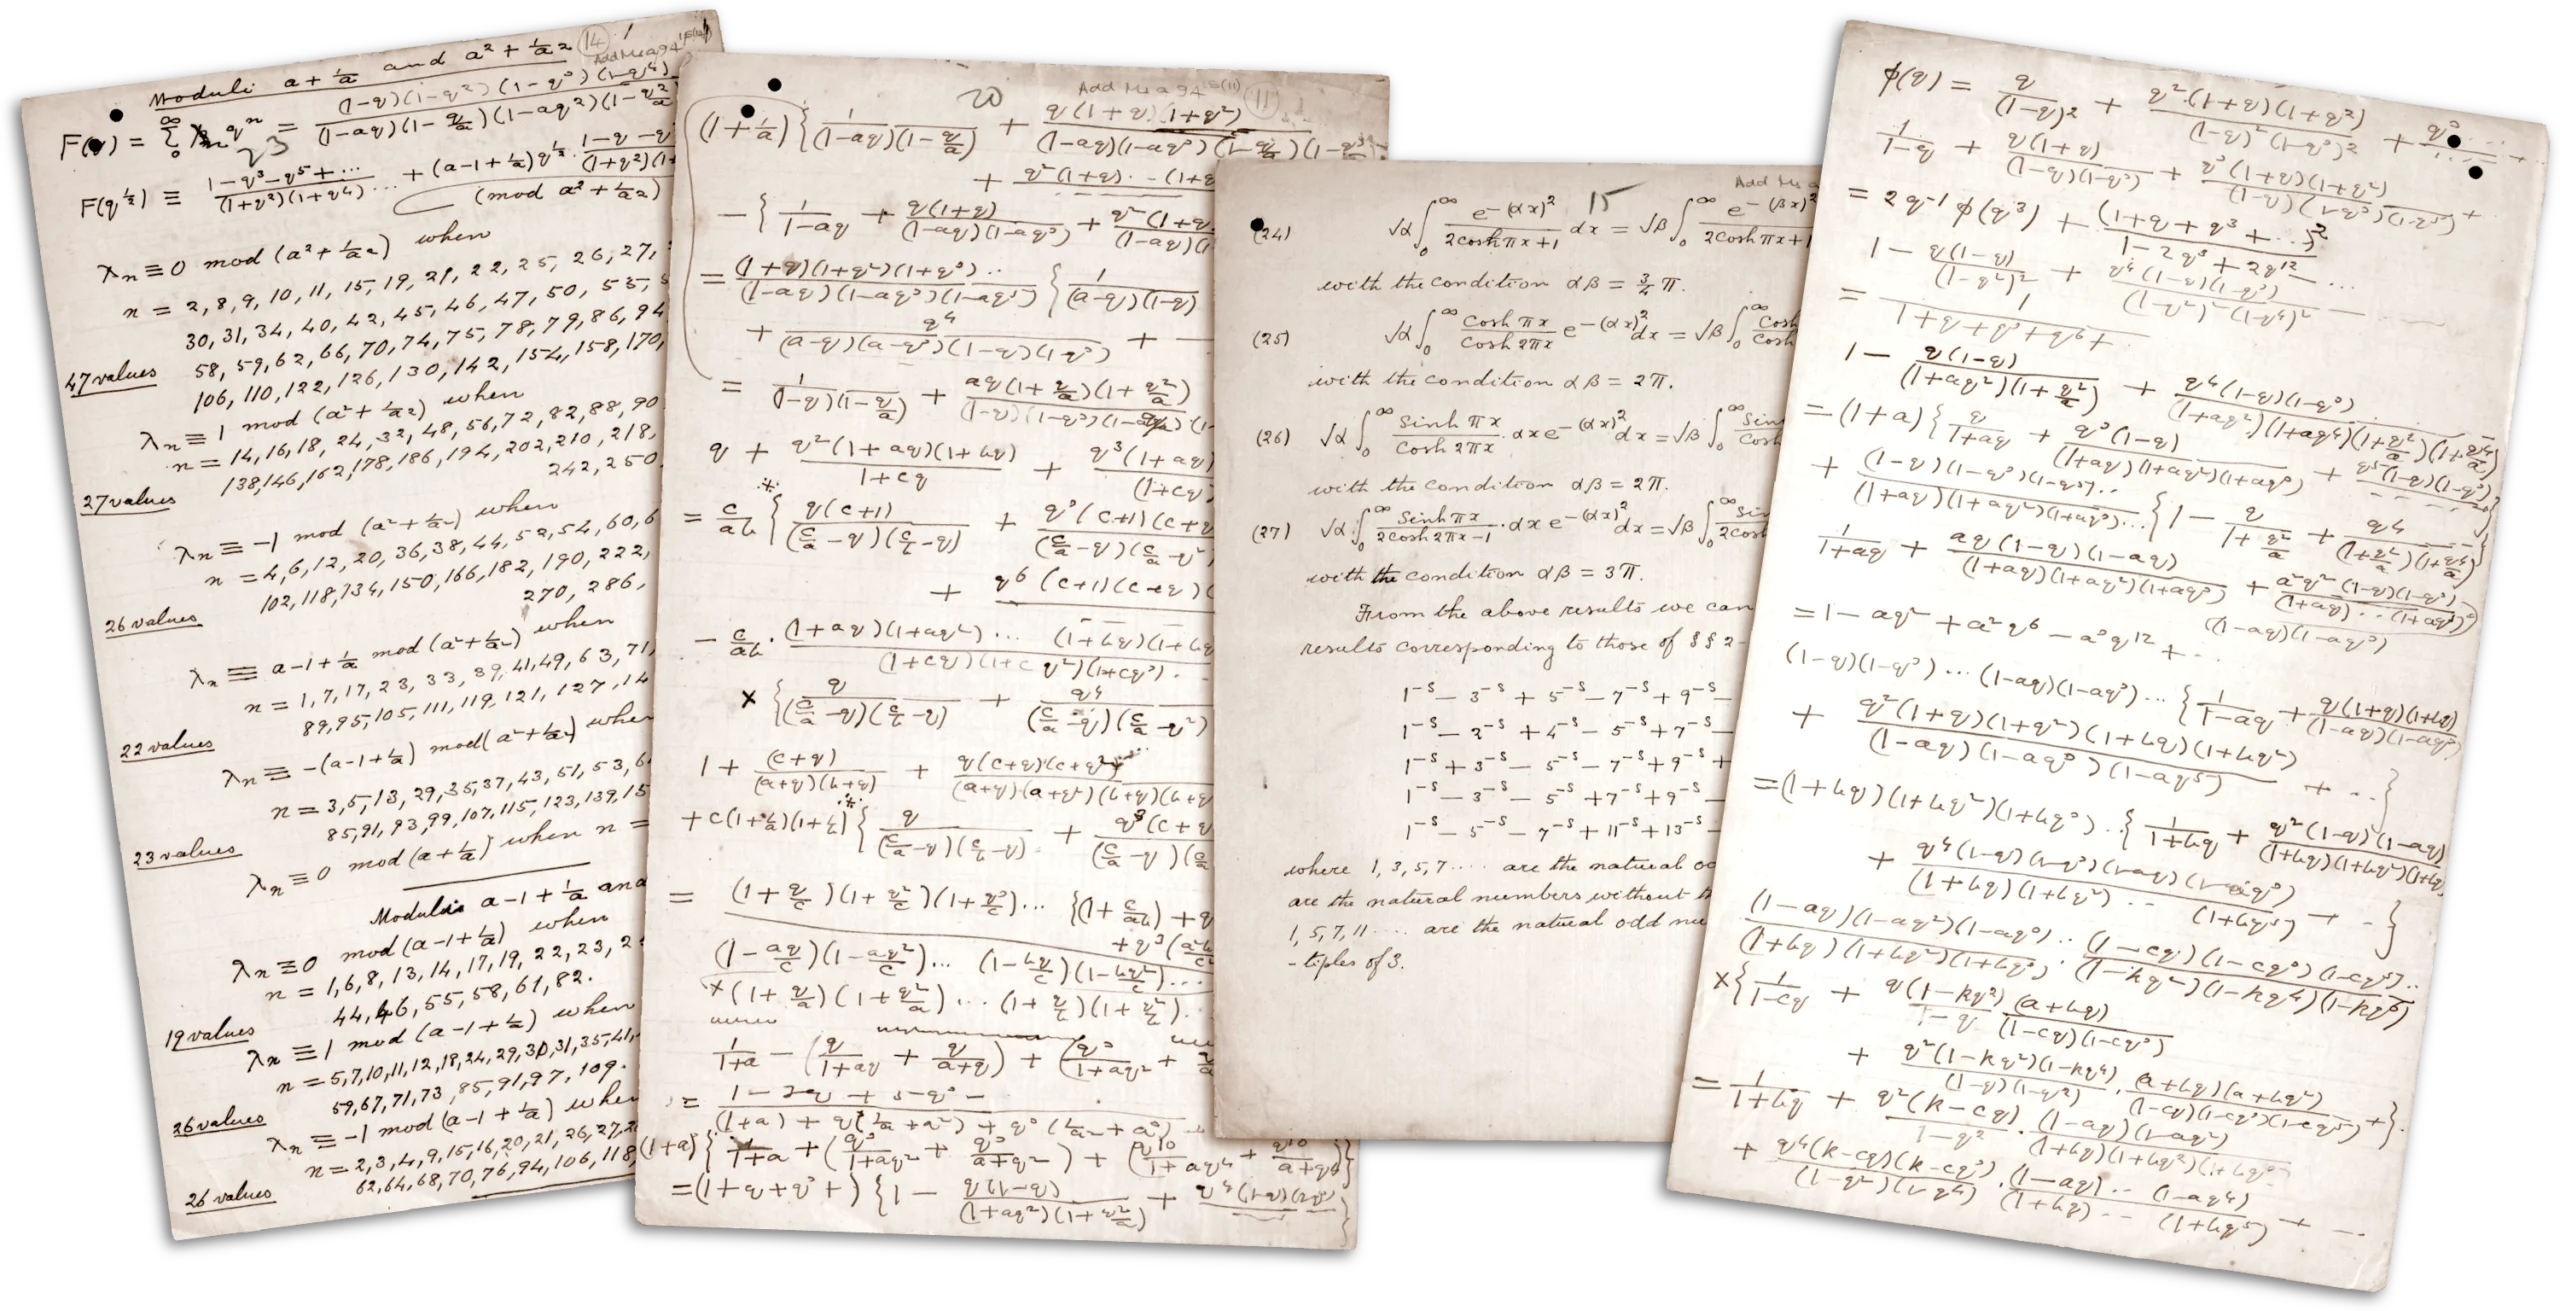 Moduli a + 1/a and a² + 1/a²
14
F(q) = Σ₀^∞ λₙ qⁿ = (1-q)(1-q²)(1-q³)(1-q⁴) / (1-aq)(1-q/a)(1-aq²)(1-q²/a)
F(q^½) ≡ (1-q³-q⁵+...) / (1+q²)(1+q⁴)... + (a-1+1/a) q^½ · (1-q-q / (1+q²)(1+
(mod a² + 1/a²)
λₙ ≡ 0 mod (a² + 1/a²) when
n = 2, 8, 9, 10, 11, 15, 19, 21, 22, 25, 26, 27,
30, 31, 34, 40, 42, 45, 46, 47, 50, 55,
58, 59, 62, 66, 70, 74, 75, 78, 79, 86, 94
47 values
106, 110, 122, 126, 130, 142, 154, 158, 170,
λₙ ≡ 1 mod (a² + 1/a²) when
n = 14, 16, 18, 24, 32, 48, 56, 72, 82, 88, 90
138, 146, 162, 178, 186, 194, 202, 210, 218,
27 values
242, 250
λₙ ≡ -1 mod (a² + 1/a²) when
n = 4, 6, 12, 20, 36, 38, 44, 52, 54, 60, 6
102, 118, 134, 150, 166, 182, 190, 222,
26 values
270, 286,
λₙ ≡ a-1+1/a mod (a² + 1/a²) when
n = 1, 7, 17, 23, 33, 39, 41, 49, 63, 71,
89, 95, 105, 111, 119, 121, 127, 14
22 values
λₙ ≡ -(a-1+1/a) mod (a² + 1/a²) when
n = 3, 5, 13, 29, 35, 37, 43, 51, 53, 6
85, 91, 93, 99, 107, 115, 123, 139, 15
23 values
λₙ ≡ 0 mod (a + 1/a) when n =
Moduli a-1+1/a and
λₙ ≡ 0 mod (a-1+1/a) when
n = 1, 6, 8, 13, 14, 17, 19, 22, 23, 2
44, 46, 55, 58, 61, 82.
19 values
λₙ ≡ 1 mod (a-1+1/a) when
n = 5, 7, 10, 11, 12, 18, 24, 29, 30, 31, 35, 41,
59, 67, 71, 73, 85, 91, 97, 109.
26 values
λₙ ≡ -1 mod (a-1+1/a) when
n = 2, 3, 4, 9, 15, 16, 20, 21, 26, 27, 2
62, 64, 68, 70, 76, 94, 106, 118,
26 values
20
Add Ms a 94 15(11)
11
(1 + 1/a) { 1/(1-aq)(1-q/a) + q(1+q)(1+q²) / (1-aq)(1-aq³)(1-q/a)(1-q³/a)
+ q²(1+q)...(1+q
- { 1/(1-aq) + q(1+q)/(1-aq)(1-aq³) + q²(1+q / (1-aq)(1
= (1+q)(1+q²)(1+q³).. / (1-aq)(1-aq³)(1-aq⁵) { 1/(a-q)(1-q)
+ q⁴/(a-q)(a-q³)(1-q)(1-q³) + —
= 1/(1-q)(1-q/a) + aq(1+q/a)(1+q²/a) /
q + q²(1+aq)(1+bq)/(1+cq) + q³(1+aq) / (1+cq)
= c/ab { q(c+1)/(c/a-q)(c/b-q) + q³(c+1)(c+q / (c/a-q)(c/a-q²
+ q⁶(c+1)(c+q)(
- c/ab · (1+aq)(1+aq²)... (1+bq)(1+bq / (1+cq)(1+cq²)(1+cq³).
× { q/(c/a-q)(c/b-q) + q⁴/(c/a-q)(c/a-q²)
1 + (c+q)/(a+q)(b+q) + q(c+q)(c+q²)/(a+q)(a+q²)(b+q)(b+q
+ c(1+1/a)(1+1/b) { q/(c/a-q)(c/b-q) + q³(c+q / (c/a-q)(c/a
= (1+q/c)(1+q²/c)(1+q³/c)... {(1+c/ab) + q
+ q³(
(1-aq/c)(1-aq²/c)... (1-bq/c)(1-bq²/c)...
×(1+q/a)(1+q²/a)... (1+q/b)(1+q²/b).
1/(1+a) - (q/(1+aq) + q/(a+q)) + (q³/(1+aq² +
= 1-3q+5q³- / (1+a)+q(1/a+a²)+q³(1/a²+a³)
(1+a) { 1/(1+a) + (q³/(1+aq²) + q³/(a+q²)) + (q¹⁰/(1+aq⁴) + q¹⁰/(a+q⁴)
=(1+q+q³+) {1 - q(1-q)/(1+aq²)(1+q²/a) + q⁴(1-q)(1-q³)
15
Add Ms a
(24) √α ∫₀^∞ e^-(αx)²/(2cosh πx+1) dx = √β ∫₀^∞ e^-(βx)²/(2cosh πx+1
with the condition αβ = ¾π.
(25) √α ∫₀^∞ cosh πx/cosh 2πx e^-(αx)² dx = √β ∫₀^∞ cosh / cosh
with the condition αβ = 2π.
(26) √α ∫₀^∞ sinh πx/cosh 2πx · αx e^-(αx)² dx = √β ∫₀^∞ sinh / cosh
with the condition αβ = 2π.
(27) √α ∫₀^∞ sinh πx/(2cosh 2πx-1) · αx e^-(αx)² dx = √β ∫₀^∞ sin / 2cosh
with the condition αβ = 3π.
From the above results we can
results corresponding to those of §§ 2-
1⁻ˢ - 3⁻ˢ + 5⁻ˢ - 7⁻ˢ + 9⁻ˢ -
1⁻ˢ - 2⁻ˢ + 4⁻ˢ - 5⁻ˢ + 7⁻ˢ -
1⁻ˢ + 3⁻ˢ - 5⁻ˢ - 7⁻ˢ + 9⁻ˢ +
1⁻ˢ - 3⁻ˢ - 5⁻ˢ + 7⁻ˢ + 9⁻ˢ -
1⁻ˢ - 5⁻ˢ - 7⁻ˢ + 11⁻ˢ + 13⁻ˢ -
where 1, 3, 5, 7 .... are the natural od
are the natural numbers without
1, 5, 7, 11 .... are the natural odd nu
-tiples of 3.
φ(q) = q/(1-q)² + q²(1+q)(1+q²)/(1-q)²(1-q³)² + q³....
1/(1-q) + q(1+q)/(1-q)(1-q³) + q³(1+q)(1+q²)/(1-q)(1-q³)(1-q⁵) +
= 2q⁻¹φ(q³) + (1+q+q³+...)²/(1-2q³+2q¹²...
1 - q(1-q)/(1-q²)² + q⁴(1-q)(1-q³)/(1-q²)²(1-q⁴)² ...
= 1/(1+q+q³+q⁶+
1 - q(1-q)/(1+aq²)(1+q²/a) + q⁴(1-q)(1-q³)/(1+aq²)(1+aq⁴)(1+q²/a)(1+q⁴/a)
= (1+a) { q/(1+aq) + q³(1-q)/(1+aq)(1+aq²)(1+aq³) + q⁵(1-q)(1-q³)}
+ (1-q)(1-q³)(1-q⁵).. / (1+aq)(1+aq²)(1+aq³)... {1 - q/(1+q²/a) + q⁴/(1+q²/a)(1+q⁴/a)}
1/(1+aq) + aq(1-q)(1-aq)/(1+aq)(1+aq²)(1+aq³) + a²q²(1-q)(1-q³)(1-aq)(1-aq³)/(1+aq)...(1+aq⁵)
= 1 - aq² + a²q⁶ - a³q¹² + ..
(1-q)(1-q³)...(1-aq)(1-aq³)... {1/(1-aq) + q(1+q)(1+bq)/(1-aq)(1-aq³)
+ q²(1+q)(1+q²)(1+bq)(1+bq²)/(1-aq)(1-aq³)(1-aq⁵) + ..}
=(1+bq)(1+bq²)(1+bq³)..{1/(1+bq) + q²(1-q)(1-aq)/(1+bq)(1+bq²)(1+b
+ q⁴(1-q)(1-q³)(1-aq)(1-aq³)/(1+bq)(1+bq²)...(1+bq⁵) + -}
(1-aq)(1-aq²)(1-aq³).. / (1+bq)(1+bq²)(1+bq³). (1-cq)(1-cq³)(1-cq⁵).. / (1-kq²)(1-kq⁴)(1-kq⁶)
×{1/(1-cq) + q(1-kq²)/(1-q) (a+bq)/(1-cq)(1-cq³)
+ q²(1-kq²)(1-kq⁴)/(1-q)(1-q²) · (a+bq)(a+bq²)/(1-cq)(1-cq³)(1-cq⁵) +}.
= 1/(1+bq) + q²(k-cq)/(1-q²) · (1-aq)(1-aq²)/(1+bq)(1+bq²)(1+bq³
+ q⁴(k-cq)(k-cq³)/(1-q²)(1-q⁴) · (1-aq)...(1-aq⁴)/(1+bq)...(1+bq⁵) + -..